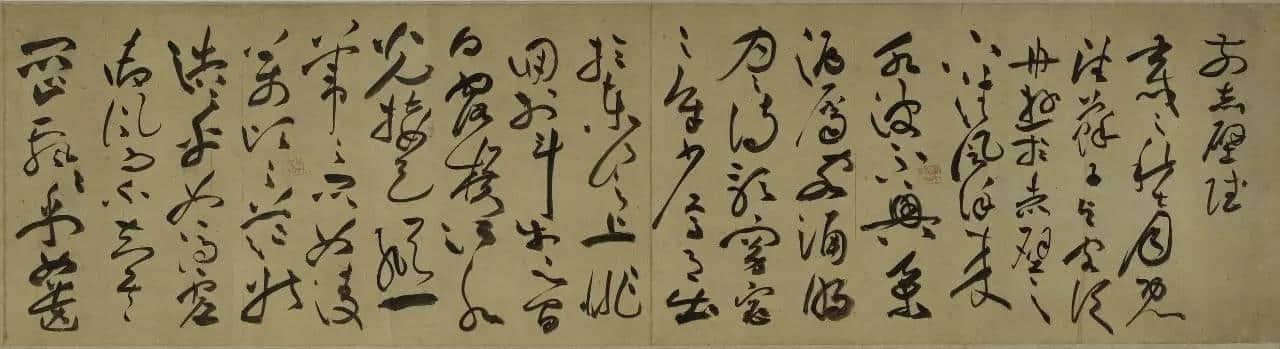 前赤壁賦
壬戌之秋七月既
望蘇子與客泛
舟遊於赤壁之
下清風徐來
水波不興舉
酒屬客誦明
月之詩歌窈窕
之章少焉月出
於東山之上徘
徊於斗牛之間
白露橫江水
光接天縱一
葦之所如凌
萬頃之茫然
浩浩乎如馮虛
御風而不知其
所止飄飄乎如遺